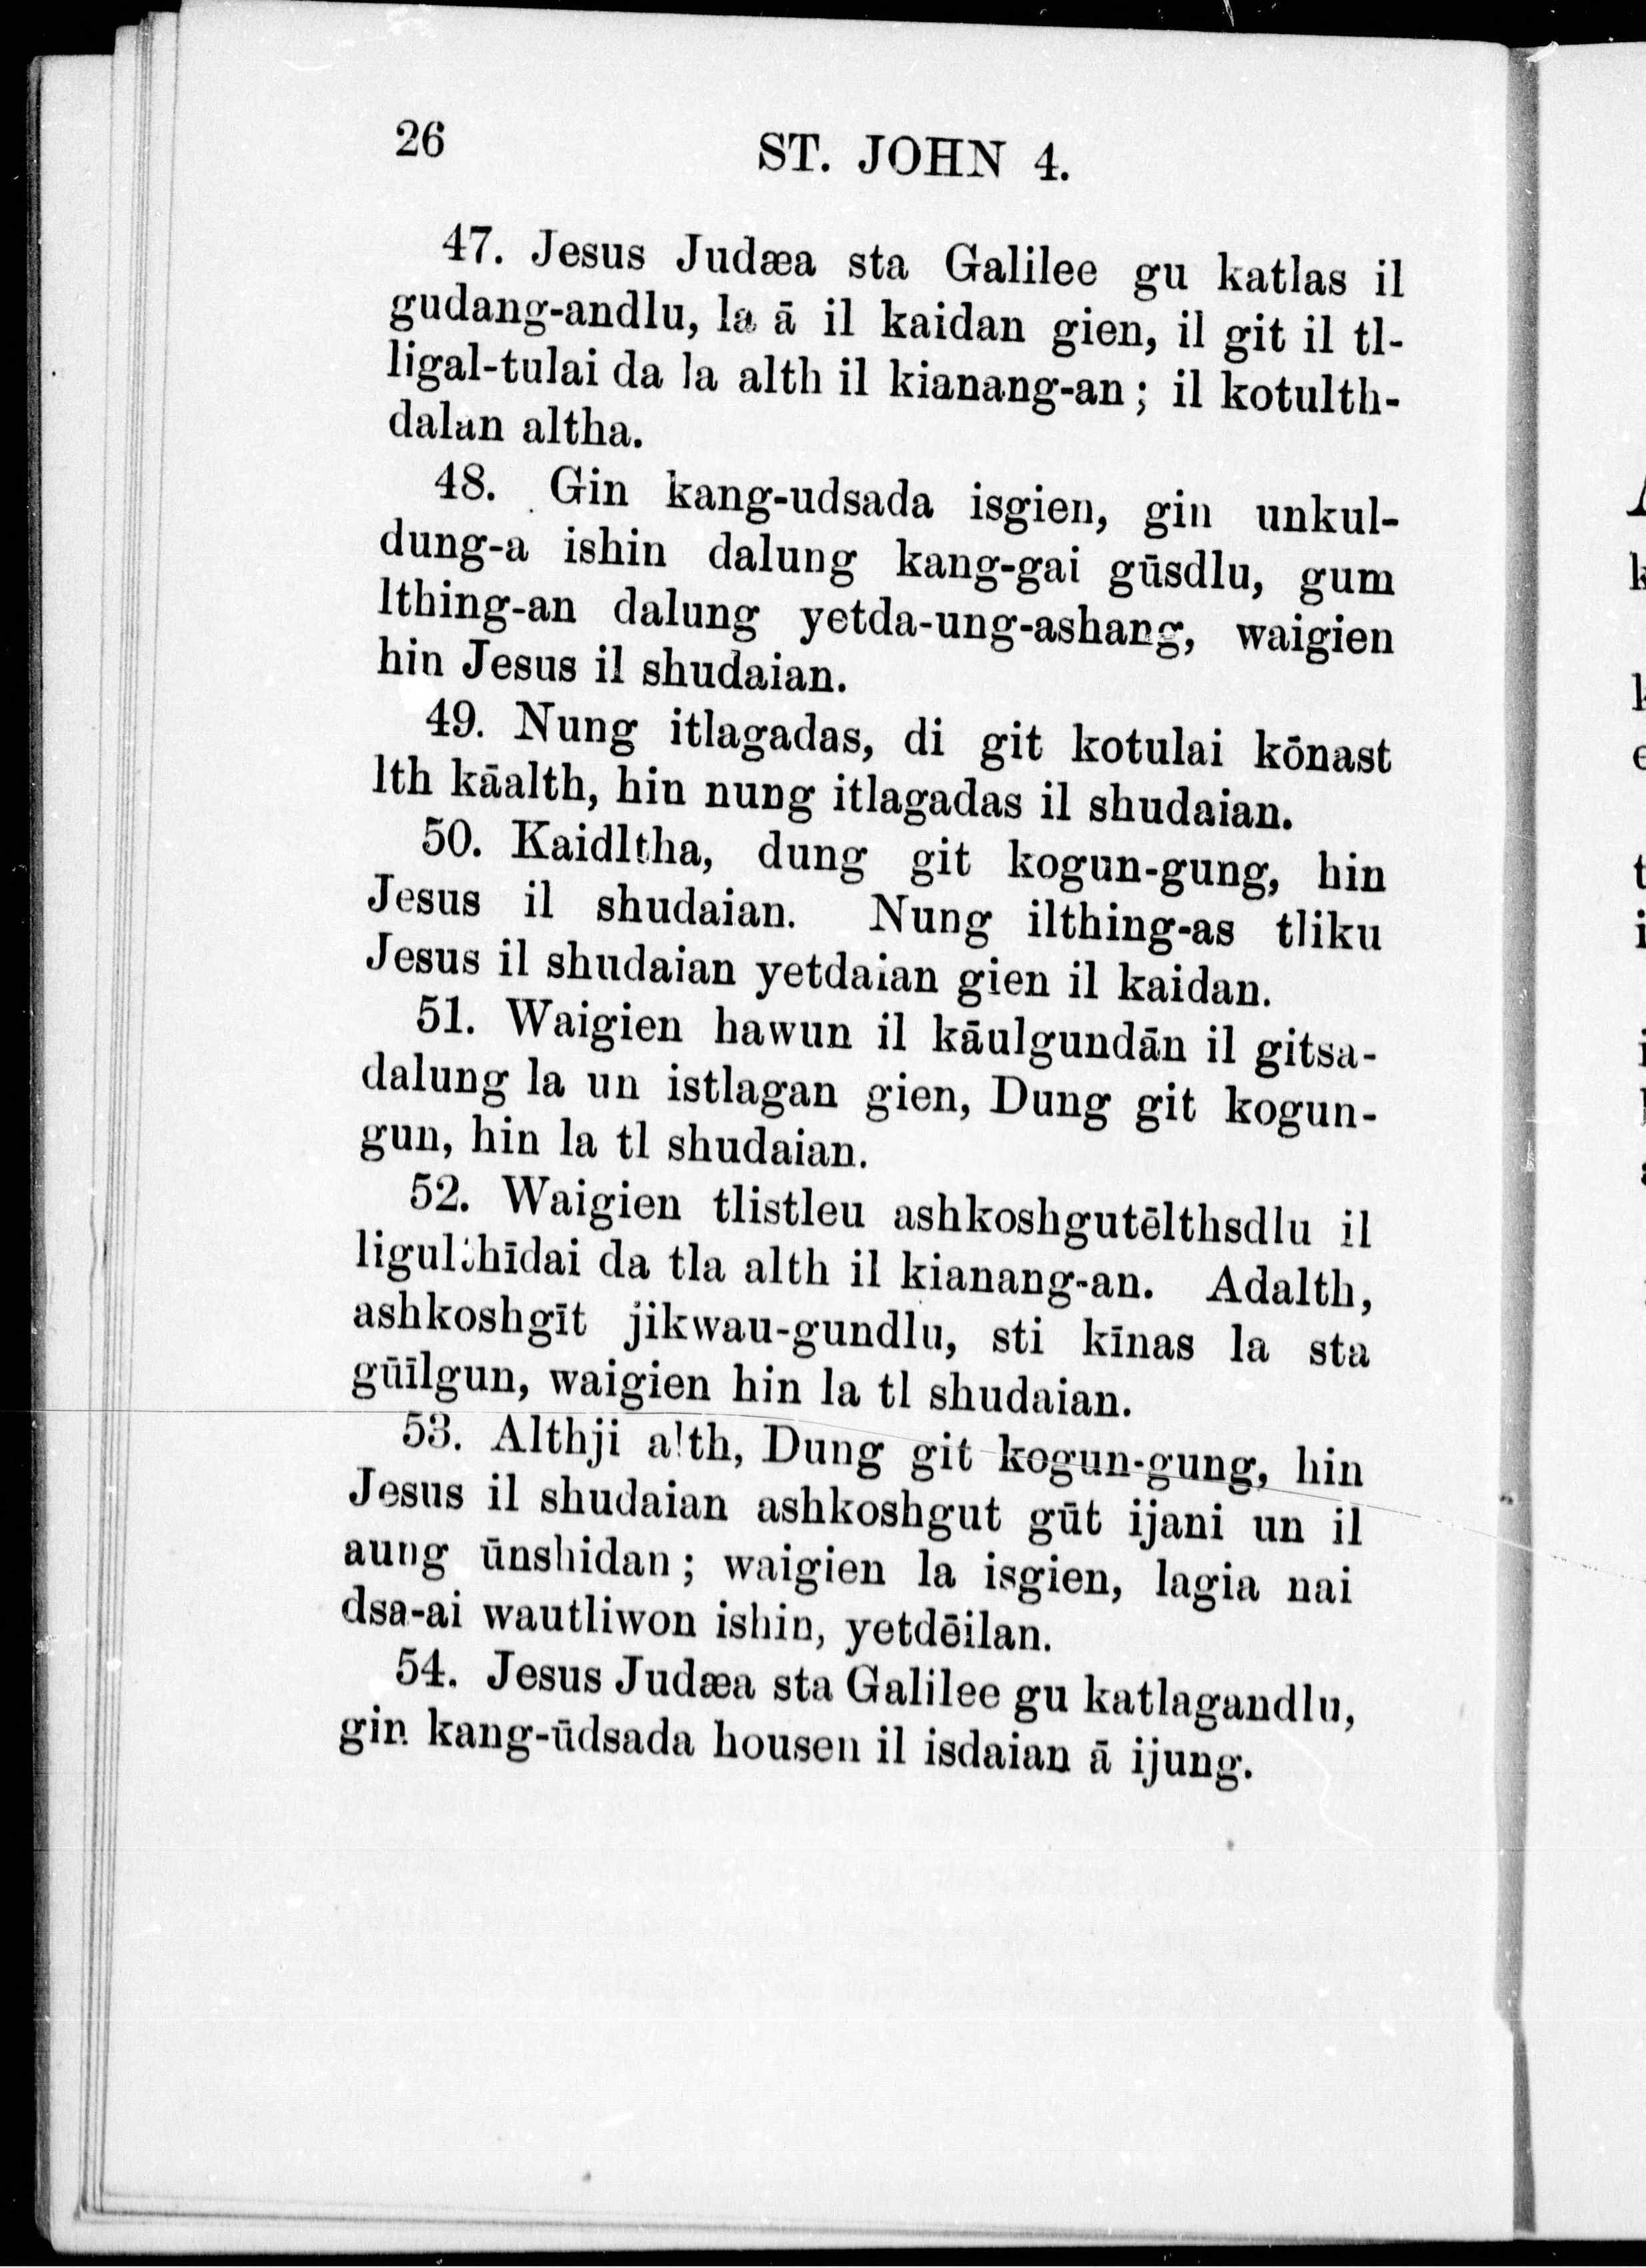 26
ST. JOHN 4.
47. Jesus Judæa sta Galilee gu katlas il
gudang-andlu, la ā il kaidan gien, il git il tl-
ligal-tulai da la alth il kianang-an; il kotulth-
dalan altha.
48. Gin kang-udsada isgien, gin unkul-
dung-a ishin dalung kang-gai gūsdlu, gum
lthing-an dalung yetda-ung-ashang, waigien
hin Jesus il shudaian.
49. Nung itlagadas, di git kotulai kōnast
lth kāalth, hin nung itlagadas il shudaian.
50. Kaidltha, dung git kogun-gung, hin
Jesus il shudaian. Nung ilthing-as tliku
Jesus il shudaian yetdaian gien il kaidan.
51. Waigien hawun il kāulgundān il gitsa-
dalung la un istlagan gien, Dung git kogun-
gun, hin la tl shudaian.
52. Waigien tlistleu ashkoshgutēlthsdlu il
ligulthīdai da tla alth il kianang-an. Adalth,
ashkoshgīt jikwau-gundlu, sti kīnas la sta
gūīlgun, waigien hin la tl shudaian.
53. Althji alth, Dung git kogun-gung, hin
Jesus il shudaian ashkoshgut gūt ijani un il
aung ūnshidan; waigien la isgien, lagia nai
dsa-ai wautliwon ishin, yetdēilan.
54. Jesus Judæa sta Galilee gu katlagandlu,
gin kang-ūdsada housen il isdaian ā ijung.